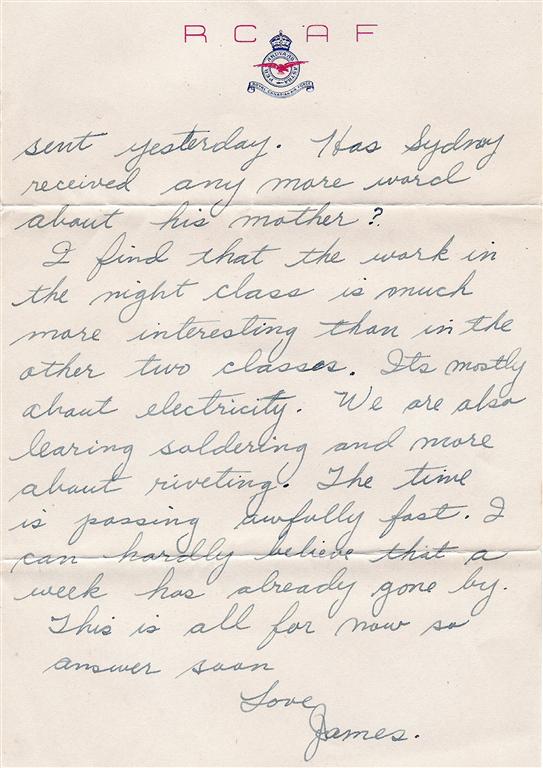 R C A F
PER ARDVA AD ASTRA
ROYAL CANADIAN AIR FORCE
sent yesterday. Has Sydney
received any more word
about his mother?
I find that the work in
the night class is much
more interesting than in the
other two classes. Its mostly
about electricity. We are also
learing soldering and more
about riveting. The time
is passing awfully fast. I
can hardly believe that a
week has already gone by.
This is all for now so
answer soon
Love
James.